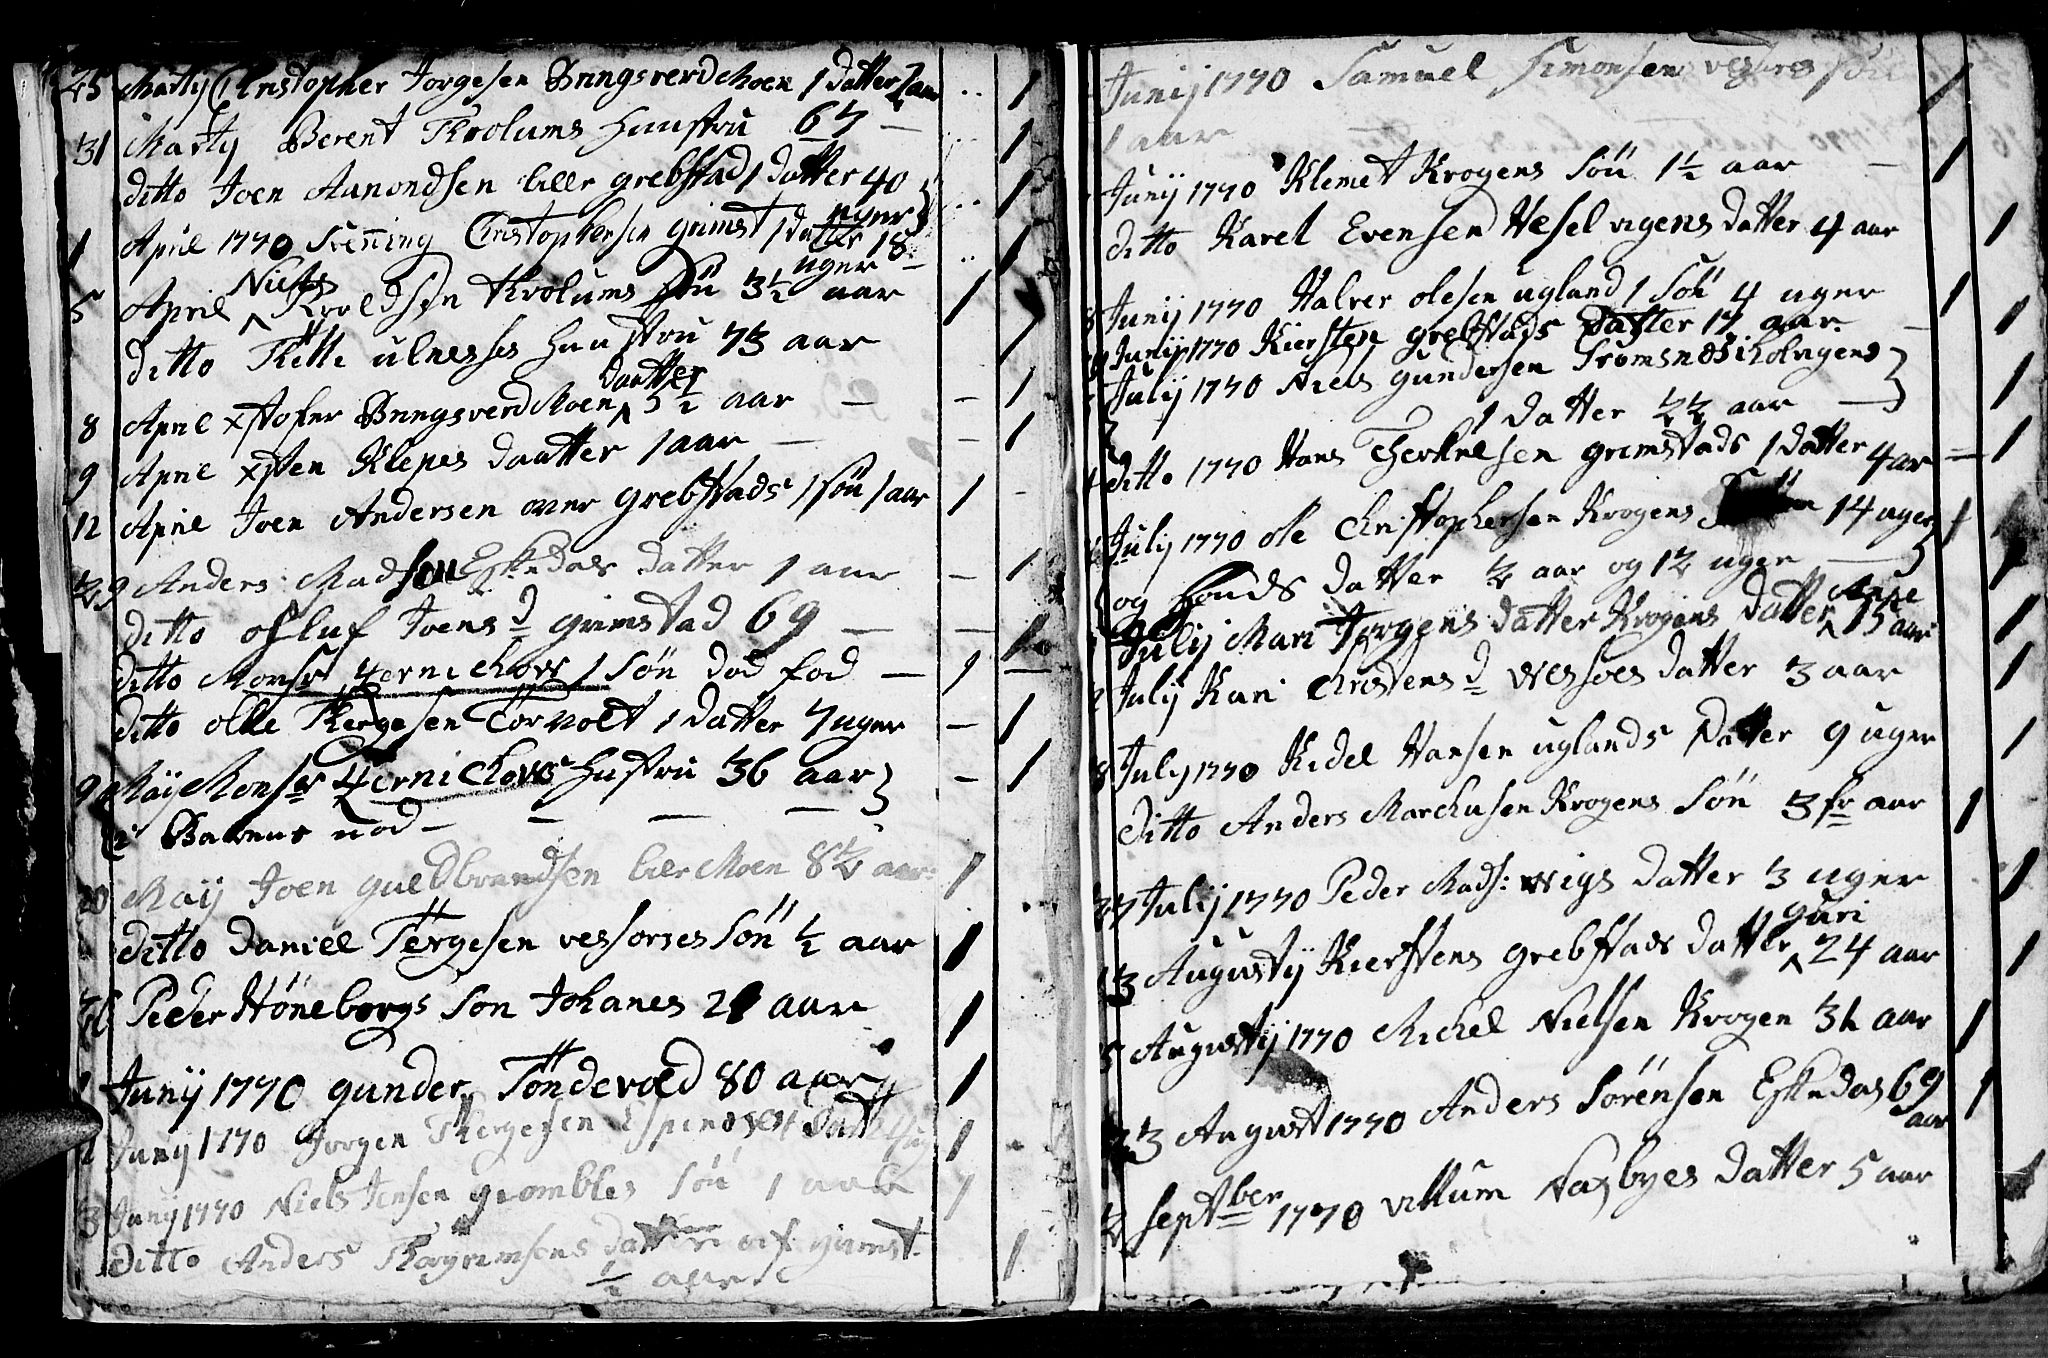 25 Martij Christopher Jorgesen Bringsverd Moen 1 datter 2 aar 1
31 Martij Berent Krolums Huustru 67 — 1
ditto Joen Aamondsen lille grebstad 1 datter 40 uger 1
1 April 1770 Svenning Christophersen grimst 1 datter 18 uger — 1
5 April Niels Kroldsen Krolums sön 3½ aar 1
ditto ulnesses Huustru 73 aar 1
8 April xstofer Bringsverd Moen daatter 5½ aar — — 1
9 April xsten Klepes daatter 1 aar — — 1
12 April Joen Andersen over grebstads 1 sön 1 aar 1
29 Anders Madsen Eskedals datter 1 aar — 1
ditto Joensd grimstad 69 — — 1
ditto Monsr 1 sön död fød — 1 —
ditto olle Tergesen Torvolt 1 datter 7 uger — 1
9 Maij Monsr Hustru 36 aar — 1
— — — —
20 Maij Joen guldbrandsen lille Moen 82 aar 1
ditto Daniel Tergesen vessöes sön ½ aar 1
26 Peder Höneborgs Sön Johanes 21 aar 1
1 Junij 1770 gunder Töndevold 80 aar 1
2 Junij 1770 Jorgen Tergesen 1
3 Junij 1770 Niels Jensen grombles sön 1 aar 1
ditto Anders Torgrimsens datter af grimst. 1
½ aar
Junij 1770 Samuel Simonsen vessöes sön 1
1 aar
Junij 1770 Klemet Krogens sön 1½ aar — 1
ditto Karel Evensen Hesselvigens datter 4 aar 1
Junij 1770 Halver olesen ugland 1 sön 4 uger 1
Junij 1770 Kiersten grebstads datter 17 aar — 1
Julij 1770 Niels gundersen Tromsnes
1 datter 2½ aar — 1
ditto 1770 Hans Terkielsen grimstads 1 datter 4 aar — 1
Julij 1770 ole Christophersen Krogens 14 uger 1
og datter ½ aar og 12 uger — 1
Julij Mari Jorgens datter Krogens datter Anne 15 aar 1
Julij Kari Christensd Wessöes datter 3 aar 1
8 Julij 1770 Kidel Hansen uglands 1 datter 9 uger 1
ditto Anders Marchusen Krogens sön 3 aar 1
27 Julij 1770 Peder Mads: wigs datter 3 uger 1
13 Augustij Kierstens grebstads datter guri 24 aar 1
5 Augustij 1770 Michel Nielsen Krogen aar 1
23 August 1770 Anders Sörensen Eskedas 69 aar 1
2 septber 1770 villum Faxbyes datter 5 aar 1